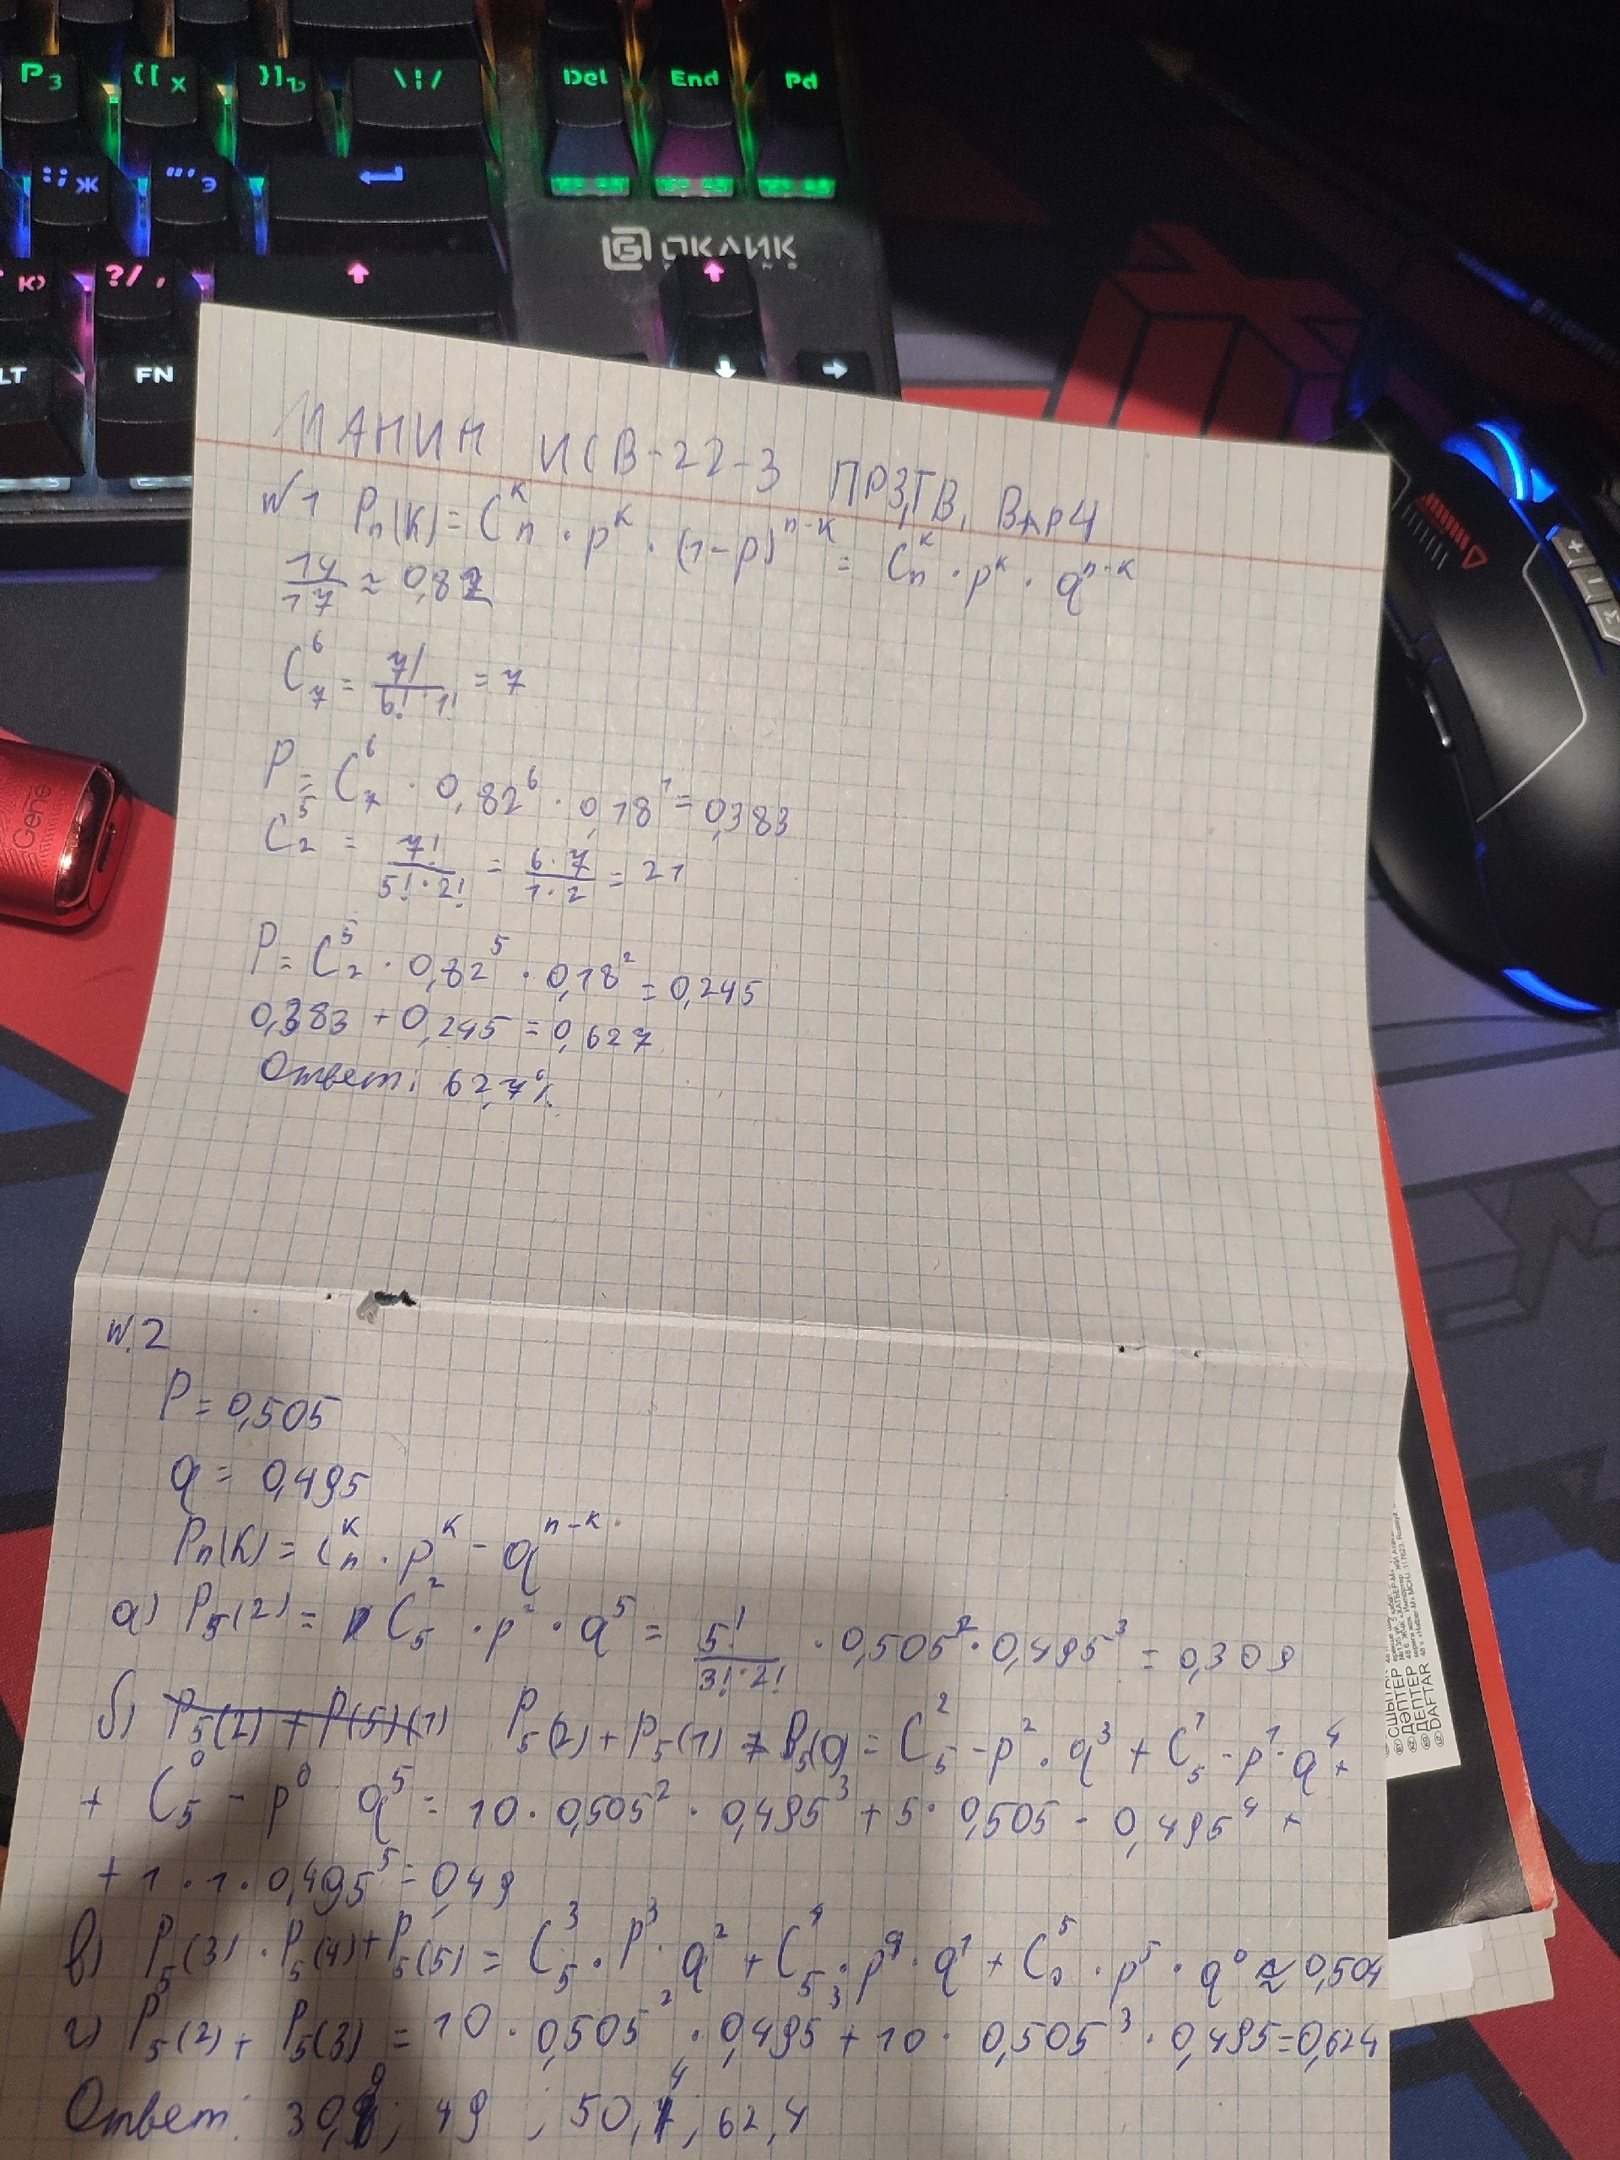 P З
{[ Х
}] Ъ
\ ¦ /
Del
End
Pd
: ; Ж
"' Э
Ю
?/ ,
LT
FN
ОКЛИК
Gene
МАНИН ИСВ-22-3 ПР3,ТВ, ВАР4
№1 Pn(K) = C n^K · p^K · (1-p)^n-K = C n^K · p^K · q^n-K
14/17 ≈ 0,82
C 7^6 = 7!/6! · 1! = 7
P = C 7^6 · 0,82^6 · 0,18^1 = 0,383
C 2^5 = 7!/5! · 2! = 6·7/1·2 = 21
P = C 2^5 · 0,82^5 · 0,18^2 = 0,245
0,383 + 0,245 = 0,627
Ответ: 62,7%.
№.2
P = 0,505
q = 0,495
Pn(K) = C n^K · p^K - q^n-K
а) P5(2) = C 5^2 · p^2 · q^5 = 5!/3!·2! · 0,505^2 · 0,495^3 = 0,309
б) P5(2) + P(5)(1) P5(2) + P5(1) + P5(0) = C 5^2 - p^2 · q^3 + C 5^1 - p^1 · q^4 +
+ C 5^0 - p^0 q^5 = 10 · 0,505^2 · 0,495^3 + 5 · 0,505 - 0,495^4 +
+ 1 · 1 · 0,495^5 = 0,49
в) P5(3) · P5(4) + P5(5) = C 5^3 · P^3 · q^2 + C 5^4 · p^4 · q^1 + C 0^5 · p^5 · q^0 ≈ 0,504
г) P5(2) + P5(3) = 10 · 0,505^2 · 0,495^3 + 10 · 0,505^3 · 0,495 = 0,624
Ответ: 30,9; 49; 50,4; 62,4
ДӘПТЕР
ДЕПТЕР
DAFTAR